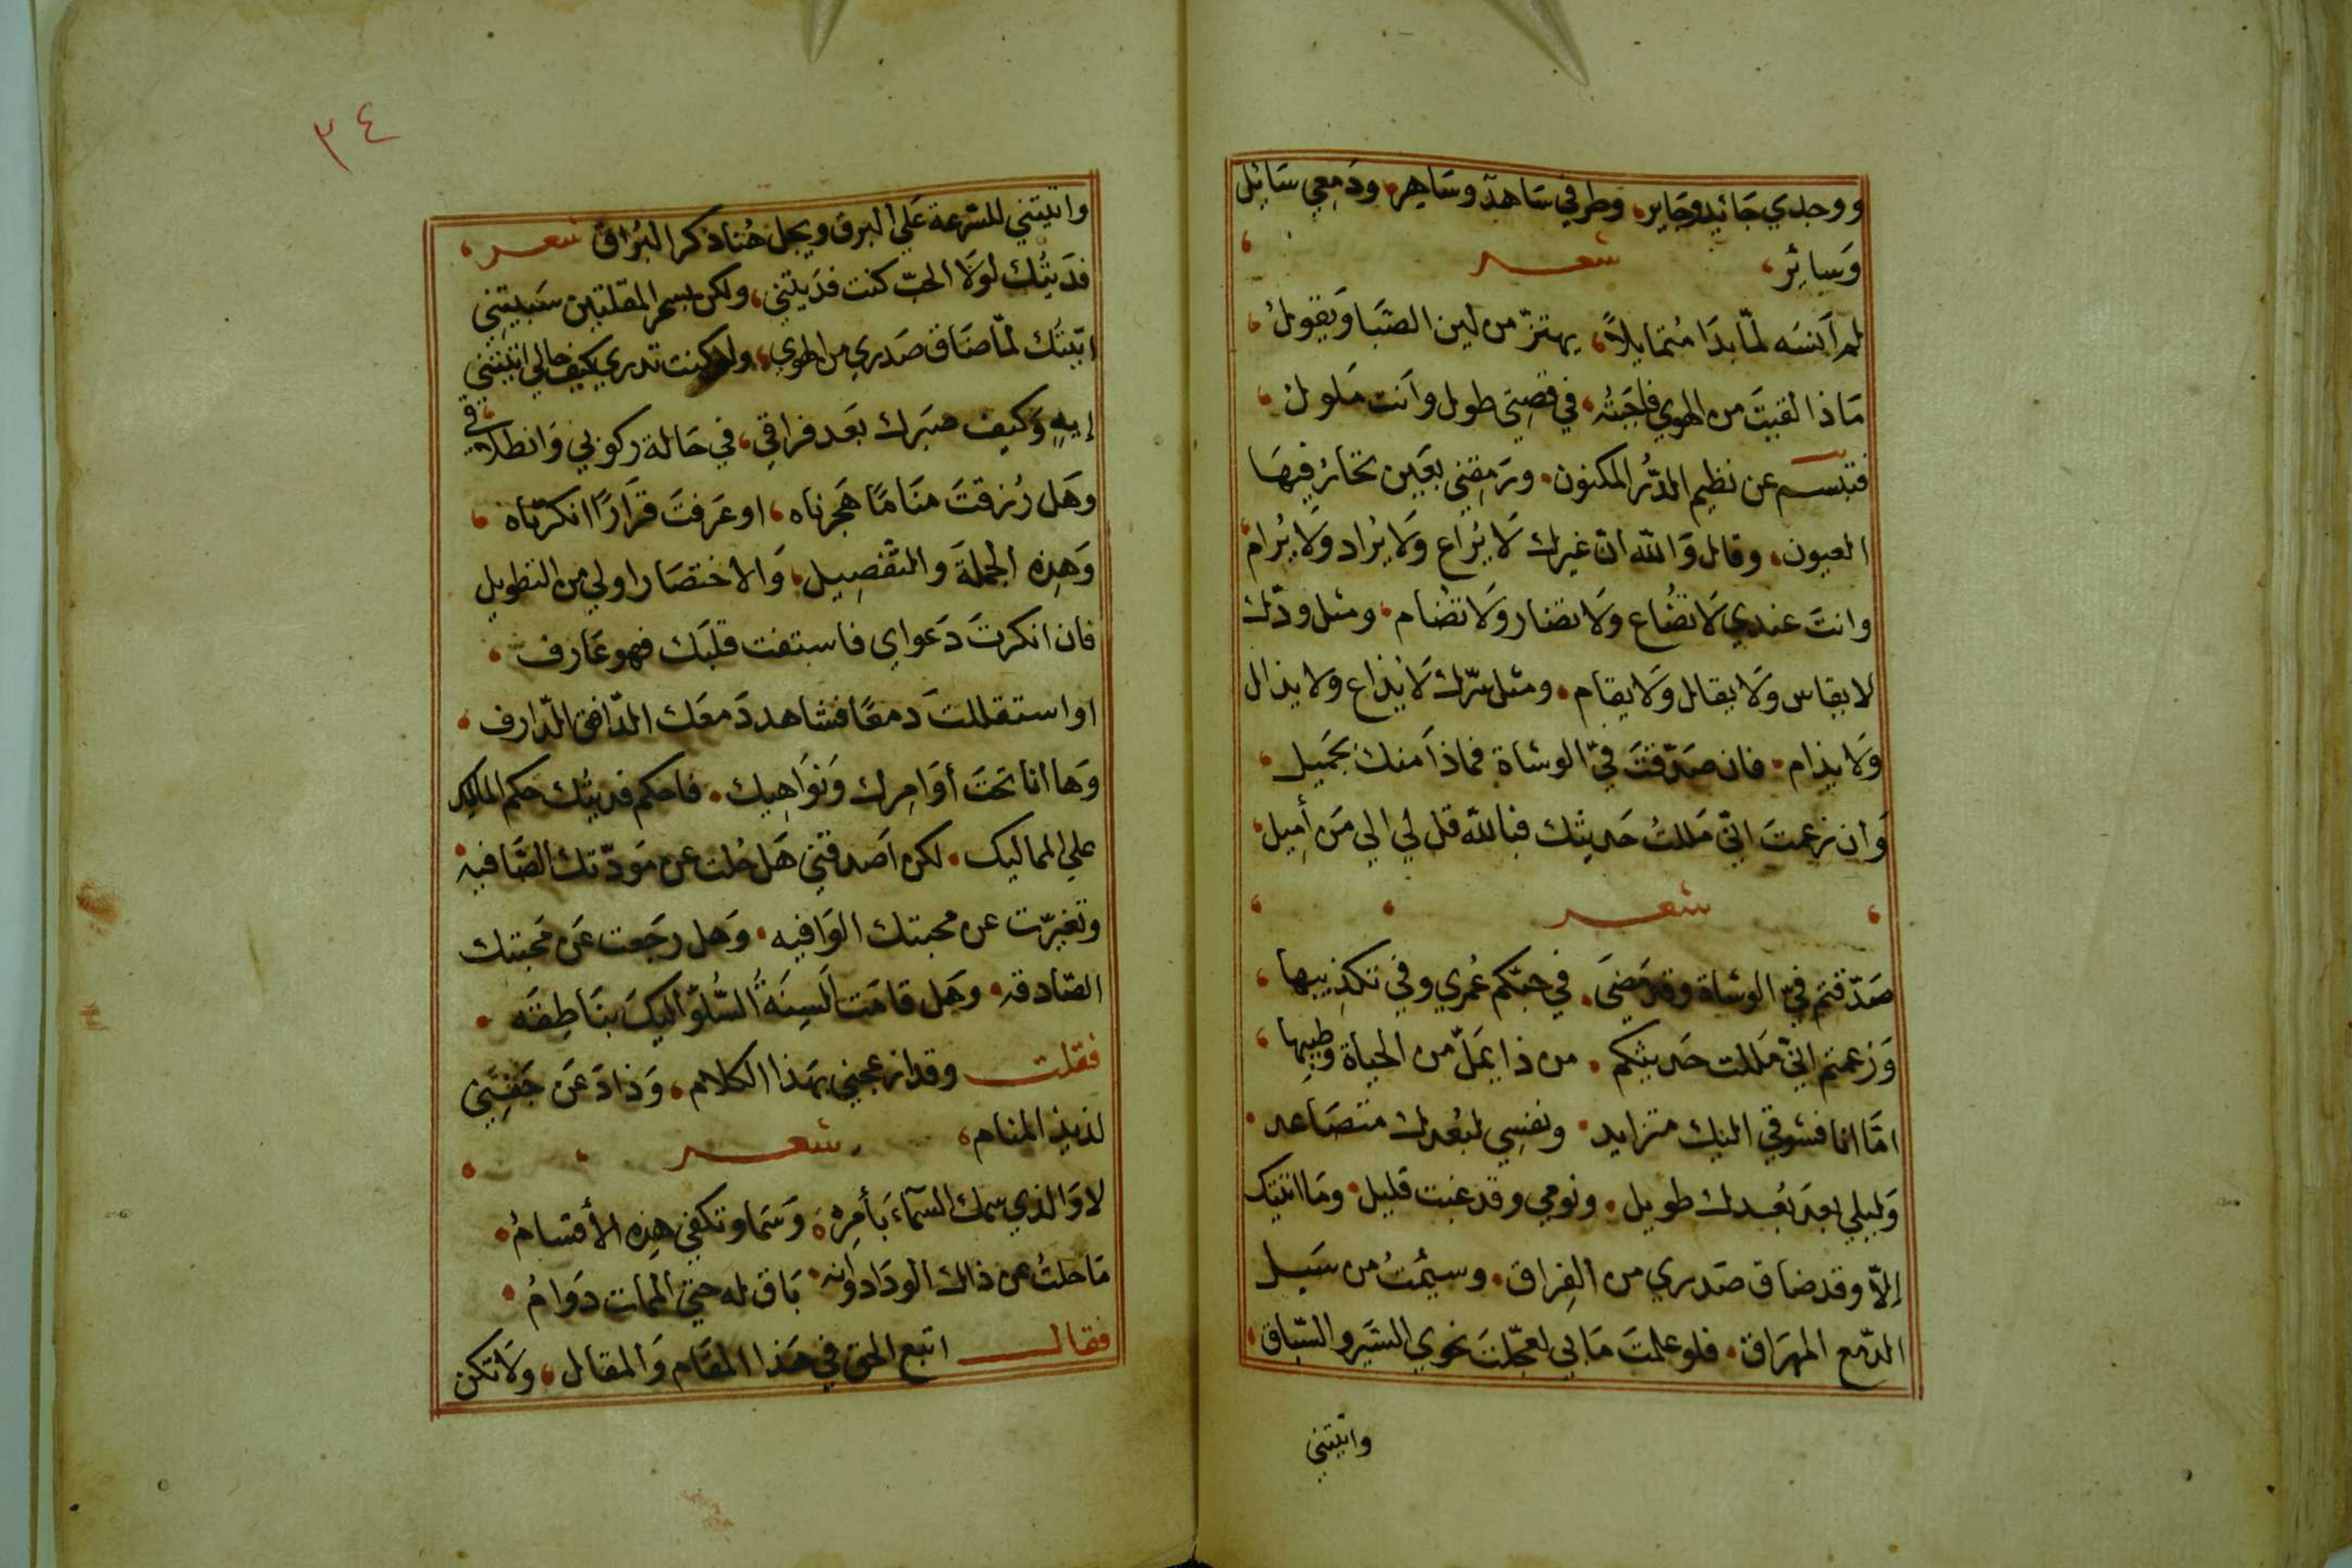 ووجدي جَائِد وجَاير، وطرفي سَاهد وسَاهر، ودَمعي سَائِل
وَسائِر،
شعر
لم اَنسَه لمّا بدَا مُتمايلاً، يهتزّ من لين الصّبَا وَيقول،
مَاذا لقيتَ من الهوي فاجَبتُه، في قصتي طول وأنت مَلول،
فتبسم عن نظيم الدّر المكنون، ورَمقني بعَين تحَار فيهَا
العيون، وقال وَالله ان غيرك لَا يُراع وَلَا يُراد وَلَا يُرام
وانتَ عندي لَا تضُاع وَلَا تضار وَلَا تضام، ومثل ودّك
لا يقاس وَلَا يقال وَلَا يقام، ومثل سرّك لَا يذاع ولا يذال
وَلا يذام، فان صَدّقتَ فيّ الوشاة فماذَا منك بجَميل،
وَان زعمتَ انّي مَللتُ حَديثك فبالله قل لي الي مَن أَمِيل،
شعر
صَدّقتم فيّ الوشاة وقد مَضيَ، في حبّكم عُمري وفي تكذيبها،
وَزعمتم انّي مَللت حَديثكم، من ذا يَملّ من الحياة وطيبِها،
امّا انا فشوقي اليك متزايد، ونفسِي لبُعدك متصَاعد،
وَليلي بعدَ بُعدك طويل، ونومي وقد غبت قليل، ومَا اتيتك
إلاّ وقد ضاق صَدري من الفِراق، وسيئمتُ من سَيل
الدّمع المهرَاق، فلو علمتَ مَا بي لعجّلتَ نحوي السَّير والسّباق،
واتيتني
٣٤
واتيتني للسّرعة عَلي البرق ويجل هُنا ذكر البُراق شعر،
فدَيتُك لولَا الحبّ كنت فدَيتني، ولكن بسحر المقلتين سَبيتني
اتيتُك لمّا ضَاق صَدري من الهوي، ولو كنت تدري كيف حالي اتيتني
إيهٍ وَكيف صبَرك بَعد فراقي، في حَالة ركوبي وَانطلاقي
وهَل رُزقتَ مَنَامًا هَجرناه، او عَرفتَ قرَارًا انكرناه،
وَهذِه الجملَة والتفصِيل، وَالاختصَار اولي من التطويل
فان انكرتَ دَعواي فاستفت قلبَك فهو عَارف،
او استقللتَ دمعًا فشاهد دَمعَك الدّافق الذّارف،
وَها انا تحَتَ أوَامِرك وَنوَاهِيك، فاحكم فديتُك حكم المَالِك
علي المماليك، لكن اَصدقني هَل حُلت عن مَودّتك الصّافيه
وتغيّرت عن محبتك الوَافيه، وَهل رجَعت عَن مَحبتك
الصّادقه، وهَل قامَت اَلسِنَةُ السُّلوّ اليكَ بنَاطِقَه،
فقلت وقد ازعجني بهَذا الكلام، وَذادَ عَن جَفنِيّ
لذيذ المنام، شعر
لا وَالذي سمك السّماءَ بأمرِه، وَسَما وتكفي هذِه الأقسَامُ،
مَا حلتُ عن ذاك الودَاد وَانه، بَاق له حتيّ الممات دَوامُ،
فقال اتبع الحق في هَذا المقَام وَالمقال، ولَا تكن